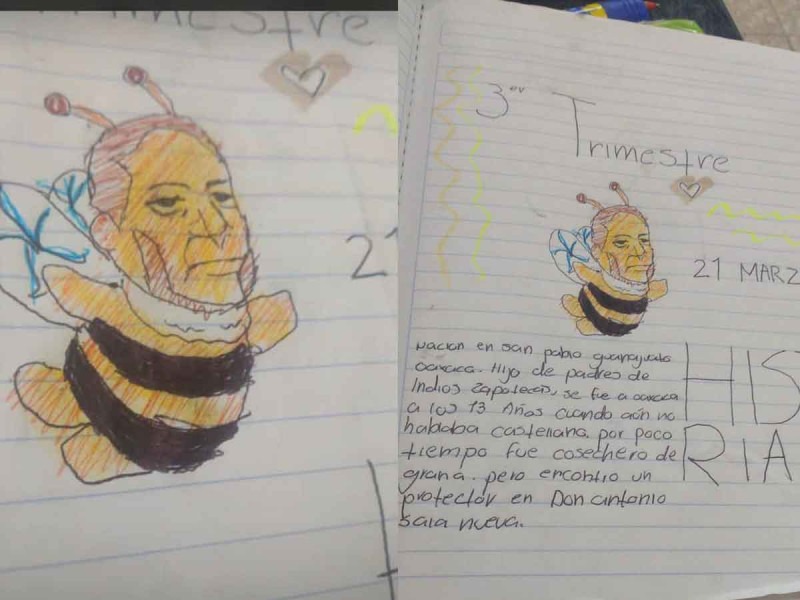 Trimestre
2
3er
Trimestre
21 MARZ
HIS
RIA
nacion en san pablo guanajuato
oaxaca. Hijo de padres de
Indios zapotecas, se fue a oaxaca
a los 13 Años cuando aún no
hablaba castellana. por poco
tiempo fue cosechero de
grana. pero encontro un
protector en Don antonio
sala nueva.